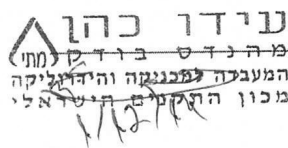 עידו כהן
מהנדס בודק
מתי
המעבדה למכניקה והידרוליקה
מכון התקנים הישראלי